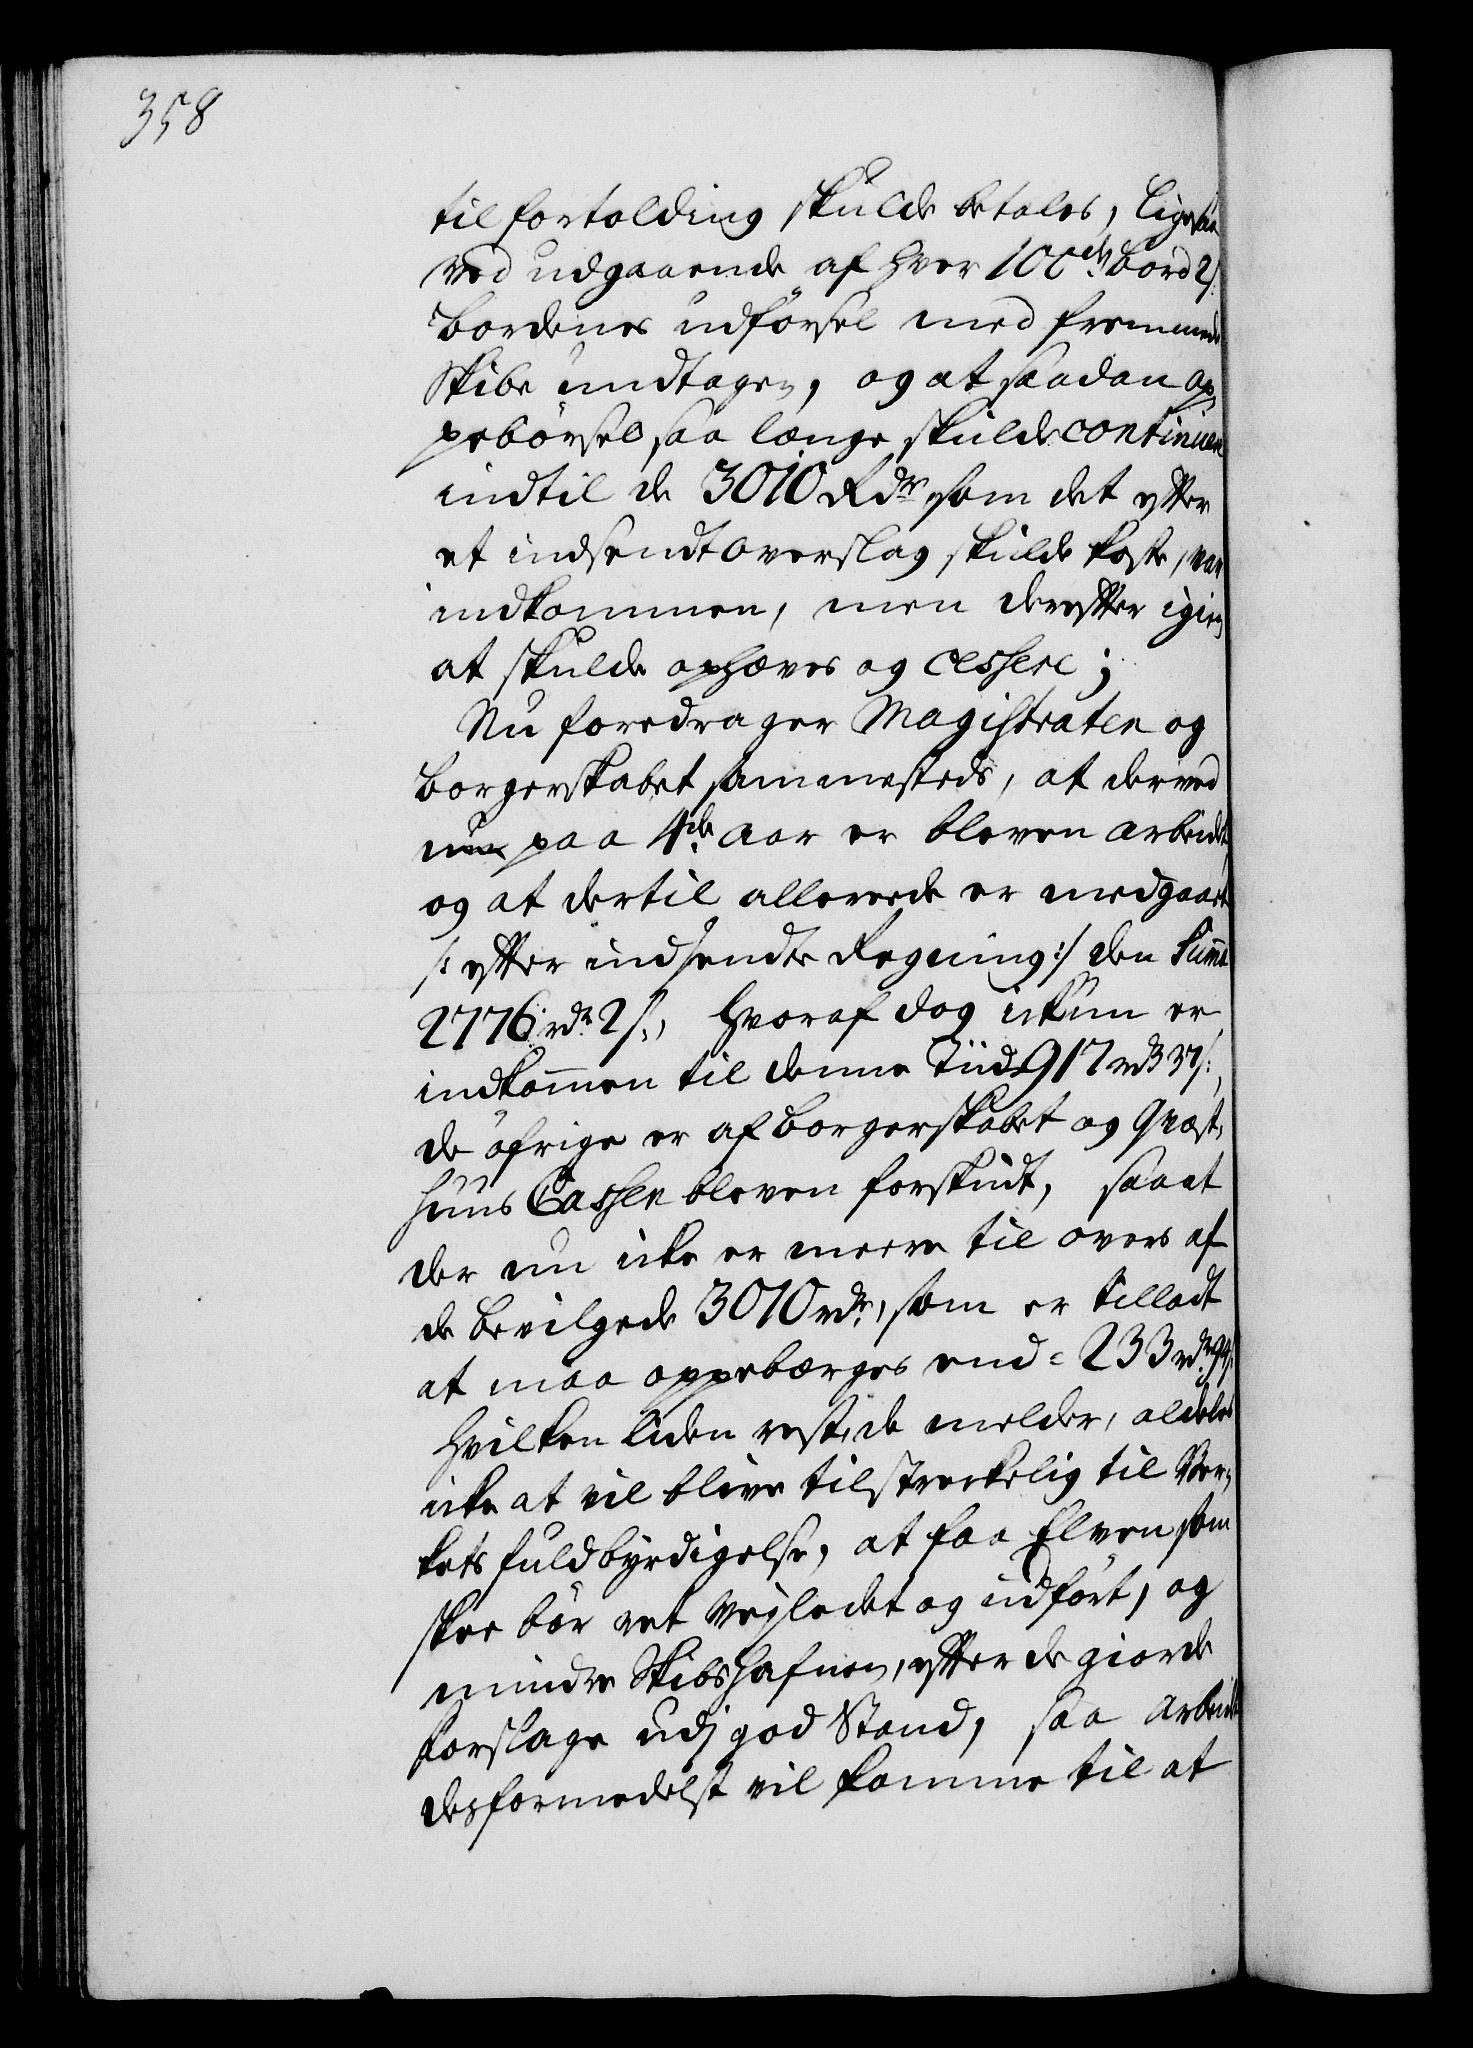 358
til fortolding skulde betales, Ligesaa
ved udgaaende af hver 100de bord 2/:
bordenes udförsel med fremmede
Skibe undtagen, og at saadan op-
pebörsel saa længe skulde continuere
indtil de 3010 Rdr. som det efter
et indsendt overslag skulde koste, var
indkommen, men derefter igien
at skulde ophæves og cessere;
Nu foredrager Magistraten og
borgerskabet sammesteds, at derved
nu paa 4de aar er bleven arbeidet,
og at dertil allereede er medgaaet
/: efter indsendte Regning :/ den Summa
2776 rdr. 2/:, hvoraf dog ickun er
indkommen til denne Tiid 917 rd 37/:,
de öfrige er af borgerskabet og Qvæst-
huus Cassen bleven forskudt, saa at
der nu icke er meere til overs af
de bevilgede 3010 rdr, som er tilladt
at maa oppebærges end = 233 rdr. 94/:
hvilken liden rest, de melder, aldeles
icke at vil blive tilstreckelig til Ver-
kets fuldbyrdigelse, at faa Elven som
skee bör ret vejledet og udfört, og
mindre Skibshafnen, efter de giorde
forslage udj god Stand, saa arbeidet
desformedelst vil komme til at